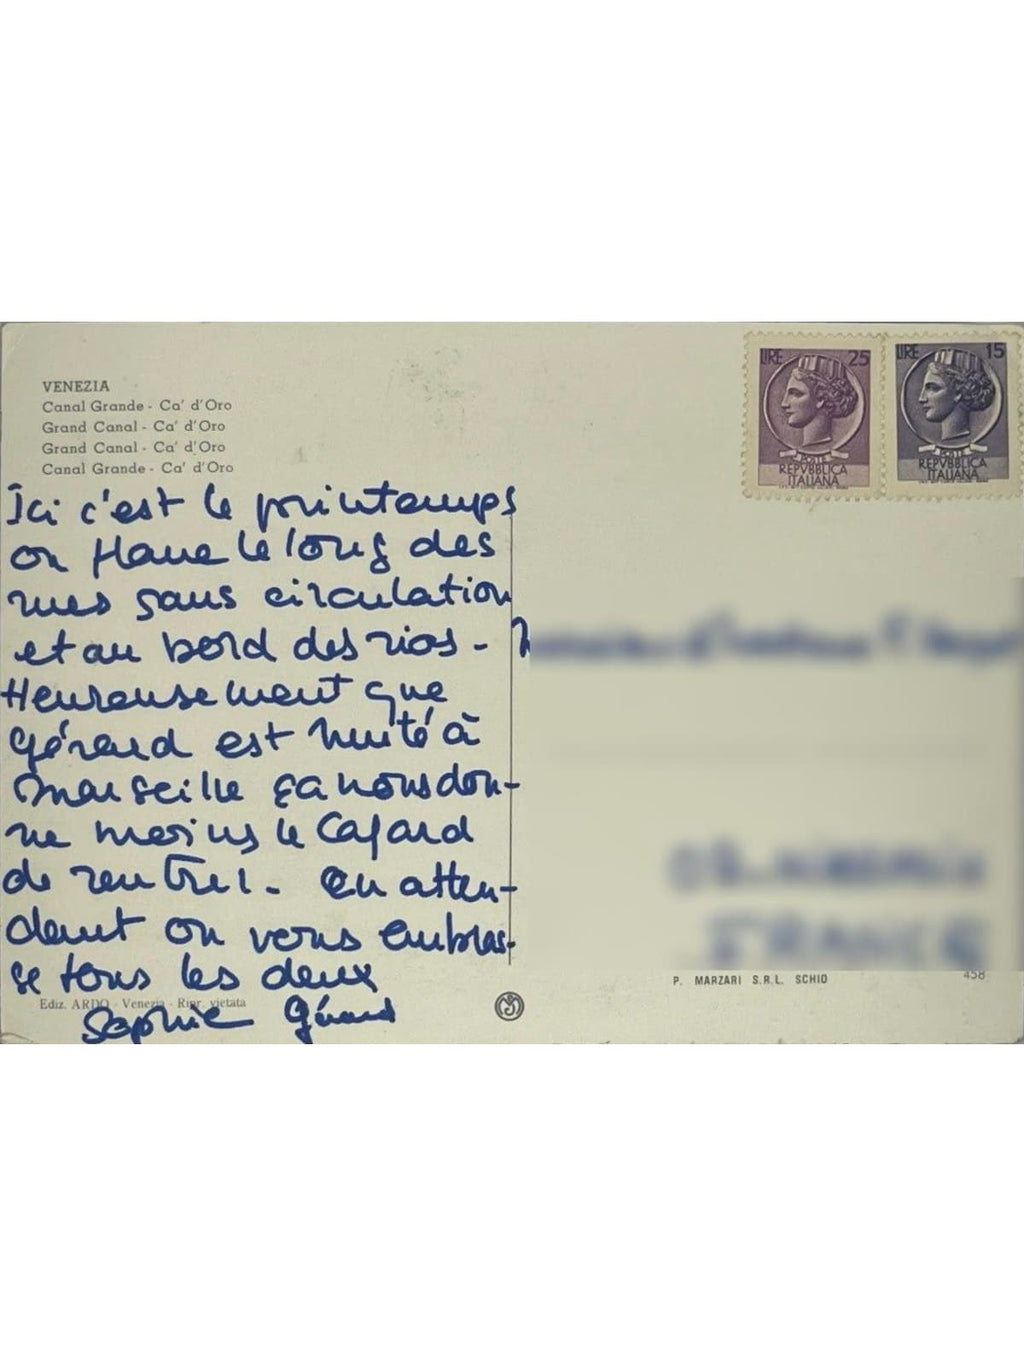 VENEZIA
Canal Grande - Ca' d'Oro
Grand Canal - Ca' d'Oro
Grand Canal - Ca' d'Oro
Canal Grande - Ca' d'Oro
LIRE 25
POSTE
REPVBBLICA
ITALIANA
LIRE 15
POSTE
REPVBBLICA
ITALIANA
Ici c'est le printemps
on flane le long des
rues sans circulation
et au bord des rios -
Heureusement que
Gérard est muté à
Marseille ça nous don-
ne moins le cafard
de rentrer. En atten-
dant on vous embras-
se tous les deux
Sophie Gérard
Ediz. ARDO - Venezia - Ripr. vietata
P. MARZARI S.R.L. SCHIO
458